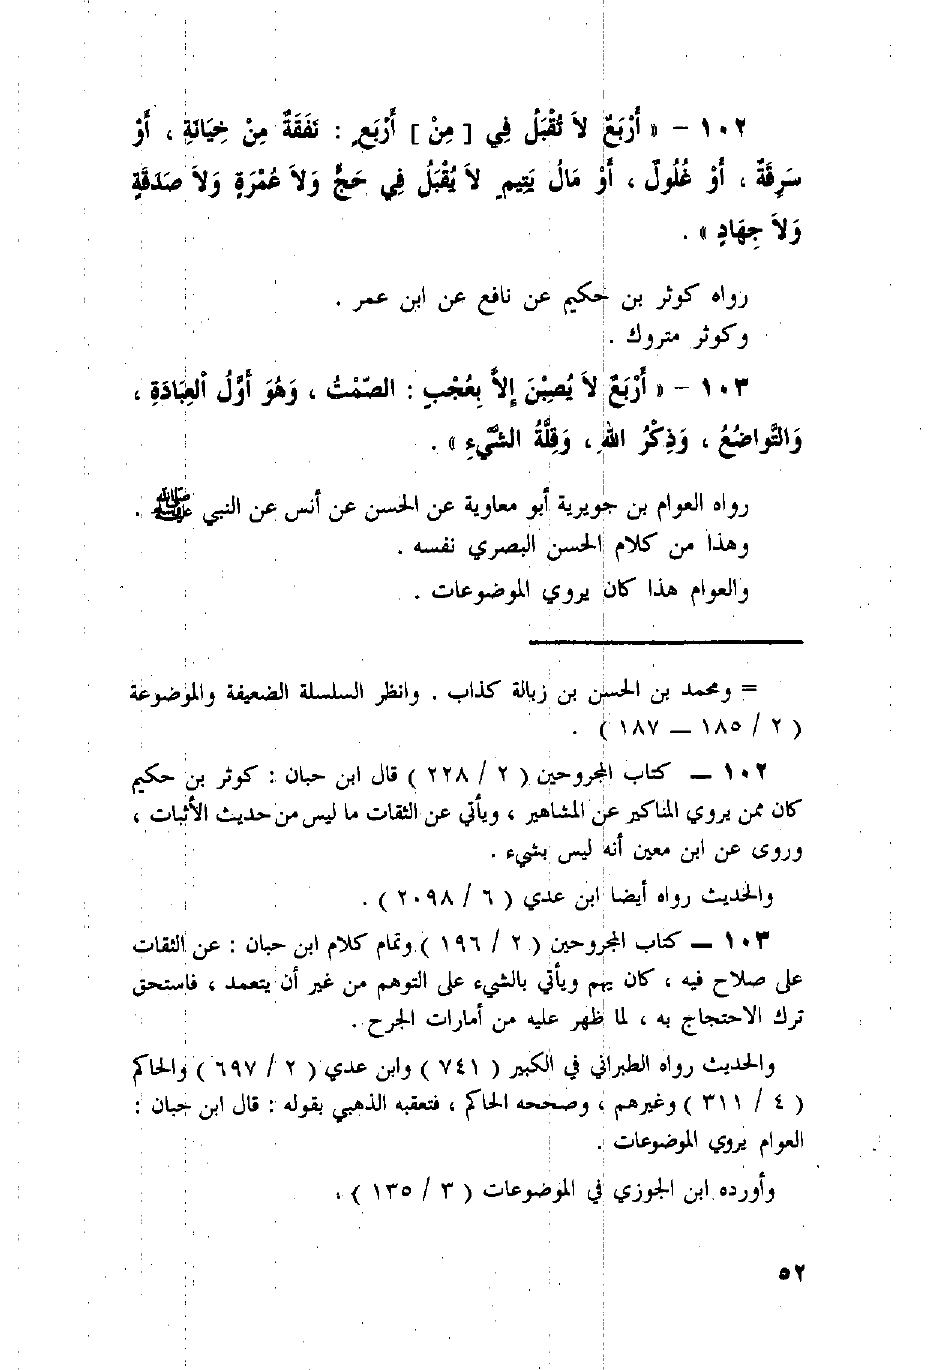 ١٠٢ – « أَرْبَعٌ لاَ تُقْبَلُ فِي [ مِنْ ] أَرْبَعٍ : نَفَقَةٌ مِنْ خِيَانَةٍ ، أَوْ
سَرِقَةٌ ، أَوْ غُلُولٌ ، أَوْ مَالُ يَتِيمٍ لاَ يُقْبَلُ فِي حَجٍّ وَلاَ عُمْرَةٍ وَلاَ صَدَقَةٍ
وَلاَ جِهَادٍ » .
رواه كوثر بن حكيم عن نافع عن ابن عمر .
وكوثر متروك .
١٠٣ – « أَرْبَعٌ لاَ يُصِبْنَ إِلاَّ بِعُجْبٍ : الصَّمْتُ ، وَهُوَ أَوَّلُ الْعِبَادَةِ ،
وَالتَّوَاضُعُ ، وَذِكْرُ اللهِ ، وَقِلَّةُ الشَّيْءِ » .
رواه العوام بن جويرية أبو معاوية عن الحسن عن أنس عن النبي ﷺ .
وهذا من كلام الحسن البصري نفسه .
والعوام هذا كان يروي الموضوعات .
= ومحمد بن الحسن بن زبالة كذاب . وانظر السلسلة الضعيفة والموضوعة
( ٢ / ١٨٥ – ١٨٧ ) .
١٠٢ – كتاب المجروحين ( ٢ / ٢٢٨ ) قال ابن حبان : كوثر بن حكيم
كان ممن يروي المناكير عن المشاهير ، ويأتي عن الثقات ما ليس من حديث الأثبات ،
وروى عن ابن معين أنه ليس بشيء .
والحديث رواه أيضا ابن عدي ( ٦ / ٢٠٩٨ ) .
١٠٣ – كتاب المجروحين ( ٢ / ١٩٦ ) وتمام كلام ابن حبان : عن الثقات
على صلاح فيه ، كان يهم ويأتي بالشيء على التوهم من غير أن يتعمد ، فاستحق
ترك الاحتجاج به ، لما ظهر عليه من أمارات الجرح .
والحديث رواه الطبراني في الكبير ( ٧٤١ ) وابن عدي ( ٢ / ٦٩٧ ) والحاكم
( ٤ / ٣١١ ) وغيرهم ، وصححه الحاكم ، فتعقبه الذهبي بقوله : قال ابن حبان :
العوام يروي الموضوعات .
وأورده ابن الجوزي في الموضوعات ( ٣ / ١٣٥ ) .
٥٢